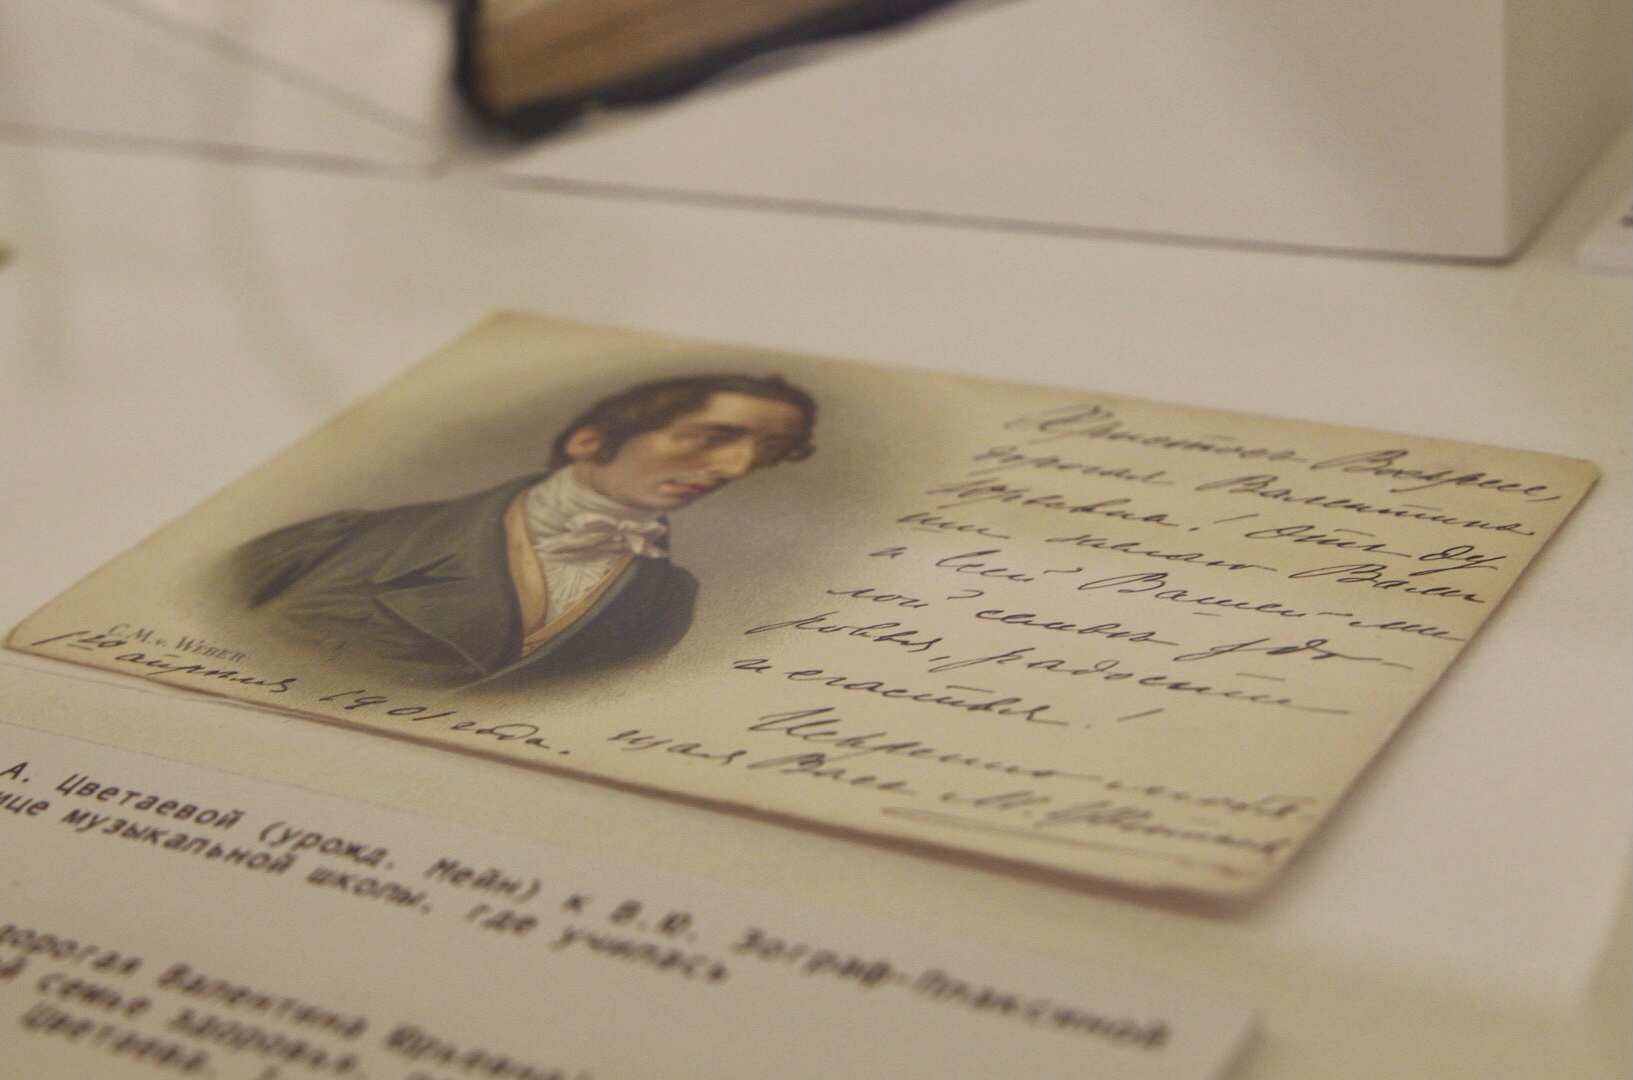 Христосъ Воскресе,
дорогая Валентина
Юрьевна! Отъ ду
ши желаю Вамъ
и всей Вашей ми
лой семьѣ здо-
ровья, радости
и счастья!
Искренно любя-
щая Васъ М. Цвѣтаева
C. M. v. WEBER
1го апрѣля 1901 года.
А. Цветаевой (урожд. Мейн) к В.Ю. Зограф-Плаксиной
ице музыкальной школы, где училась
дорогая Валентина Юрьевна!
й семье здоровья,
Цветаева.